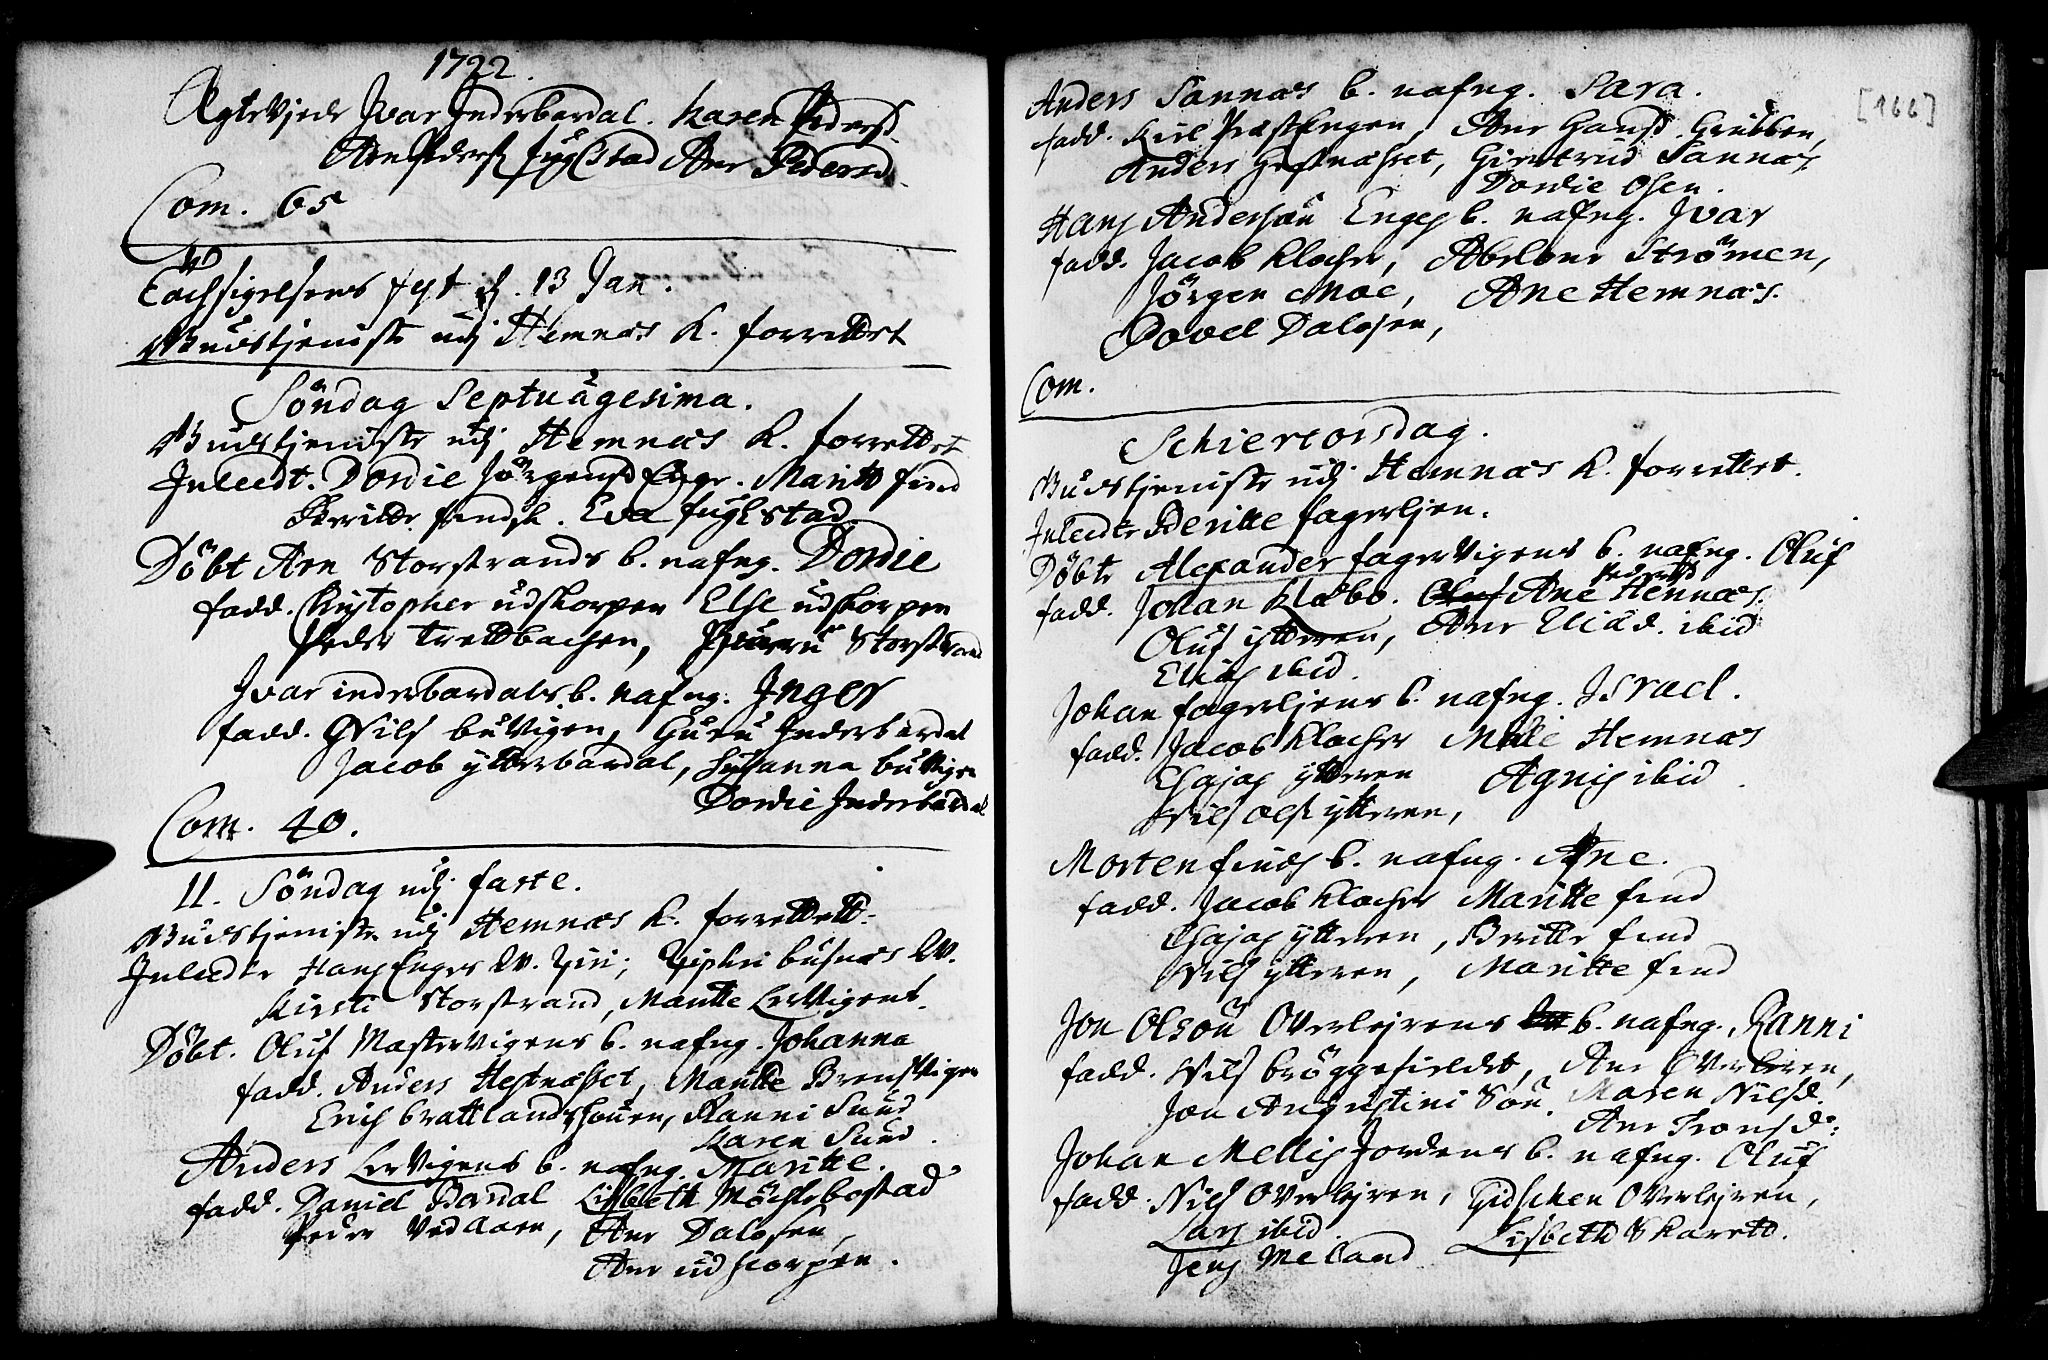 1722.
Ægteviede Ivar Inderbardal. Karen Pedersd
Arn Peders fuglstad Ane Pedersd.
Com. 65
Tachsigelsens fest d. 13 Jan.
Gudstieniste udj Hemnæs K. forrettet
Söndag Septuagesima.
Gudstieniste udj Hemnæs K. forrettet
Inleedt. Dordie Jörgensd Enge. Maritte find
Berritte findsk. Eva fuglstad
Döbt Arn Storstrands b. nafng. Dordie
fadd. Christopher udskorpen Else udskorpen
Peder Trettbachen, Storstrand
Ivar inderbardals b. nafng. Inger
fadd. Nils buvigen, Guru Inderbardal
Jacob ytterbardal, Susanna buvigen
Dordie Inderbardal
Com. 40.
II. Söndag udj faste.
Gudstieniste udj Hemnæs K. forrettett.
Inleedte Hans Enges W. Siri; Zephri busnæs W.
Kirsti Storstrand, Maritte Lervigens.
Döbt. Oluf Mastervigens b. nafng. Johanna
fadd. Anders Hestnæsset, Maritte Brensvigen
Erich brattlandshouen, Ranni Sund
Karen Sund.
Anders Lervigens b. nafng. Maritte.
fadd. Daniel Bardal Lisbeth Möchlebostad
Peder Ved Aaen, Ane Dalosen,
Ane udskorpen.
Anders Sannæs b. nafng. Sara.
fadd. Kiel Præstengen, Ane Hansd. Grubben,
Anders Hestnæsset, Giertrud Sannæs.
Dordie Osen.
Hans Andersøn Enges b. nafng. Ivar
fadd. Jacob Klocher, Abelone Strömen,
Jörgen Moe, Ane Hemnæs.
Povel Dalosen,
Com.
Schiertorsdag.
Gudstieniste udj Hemnæs K. forrettet.
Inleedte Beritte fagerlien.
Döbte Alexander fagervigens b. nafng. Oluf
fadd. Johan Klæbo. Ane Pedersd Hemnæs.
Oluf ytteren, Ane Eliæd. ibid
Elias ibid.
Johan fagerliens b. nafng. Israel.
fadd. Jacob Klocher Malé Hemnæs
Esajas ytteren Agnis ibid.
Nils Ols ytteren,
Morten finds b. nafng. Ane.
fadd. Jacob Klocher Maritte find
Esajas ytteren, Beritte find
Nils ytteren, Maritte find
Jon Olsøn Overlejrens b. nafng. Ranni
fadd. Nils bröggefieldet, Ane Overleren,
Jon Augustini Søn. Maren Nilsd.
Ane Tronsd:
Johan Mellis Jordens b. nafng. Oluf
fadd. Nils Overlejren, Gidschen Overlejren,
Lars ibid. Lisbeth Skarett.
Jens Meland
[166]